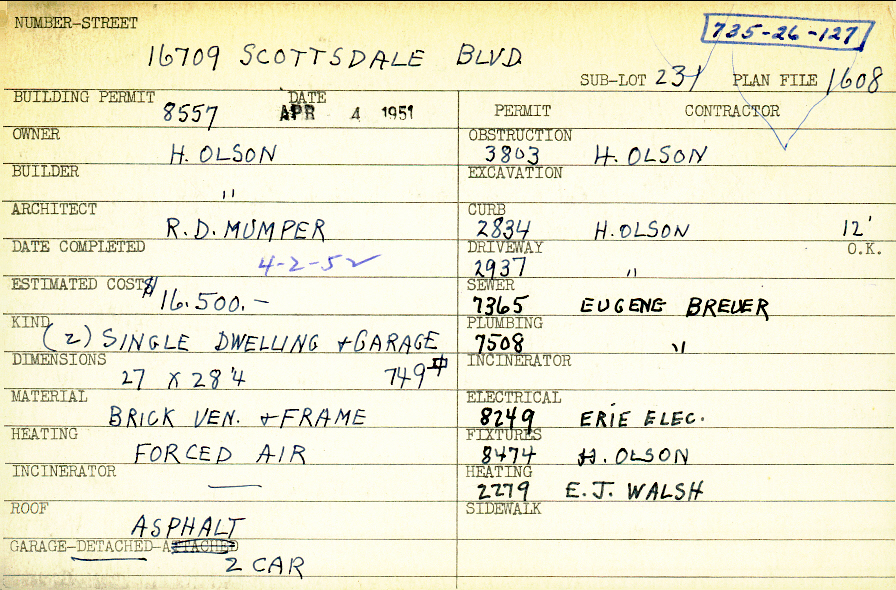 NUMBER-STREET
735-26-127
16709 SCOTTSDALE BLVD.
SUB-LOT 231 PLAN FILE 1608
BUILDING PERMIT 8557 DATE APR 4 1951
OWNER H. OLSON
BUILDER "
ARCHITECT R.D. MUMPER
DATE COMPLETED 4-2-52 ✓
ESTIMATED COST $16.500.—
KIND (2) SINGLE DWELLING + GARAGE
DIMENSIONS 27 X 28'4 749#
MATERIAL BRICK VEN. + FRAME
HEATING FORCED AIR
INCINERATOR —
ROOF ASPHALT
GARAGE-DETACHED-ATTACHED
2 CAR
PERMIT CONTRACTOR
OBSTRUCTION 3803 H. OLSON
EXCAVATION
CURB 2834 H. OLSON 12'
DRIVEWAY 2937 " O.K.
SEWER 7365 EUGENE BREUER
PLUMBING 7508 "
INCINERATOR
ELECTRICAL 8249 ERIE ELEC.
FIXTURES 8474 H. OLSON
HEATING 2279 E.J. WALSH
SIDEWALK